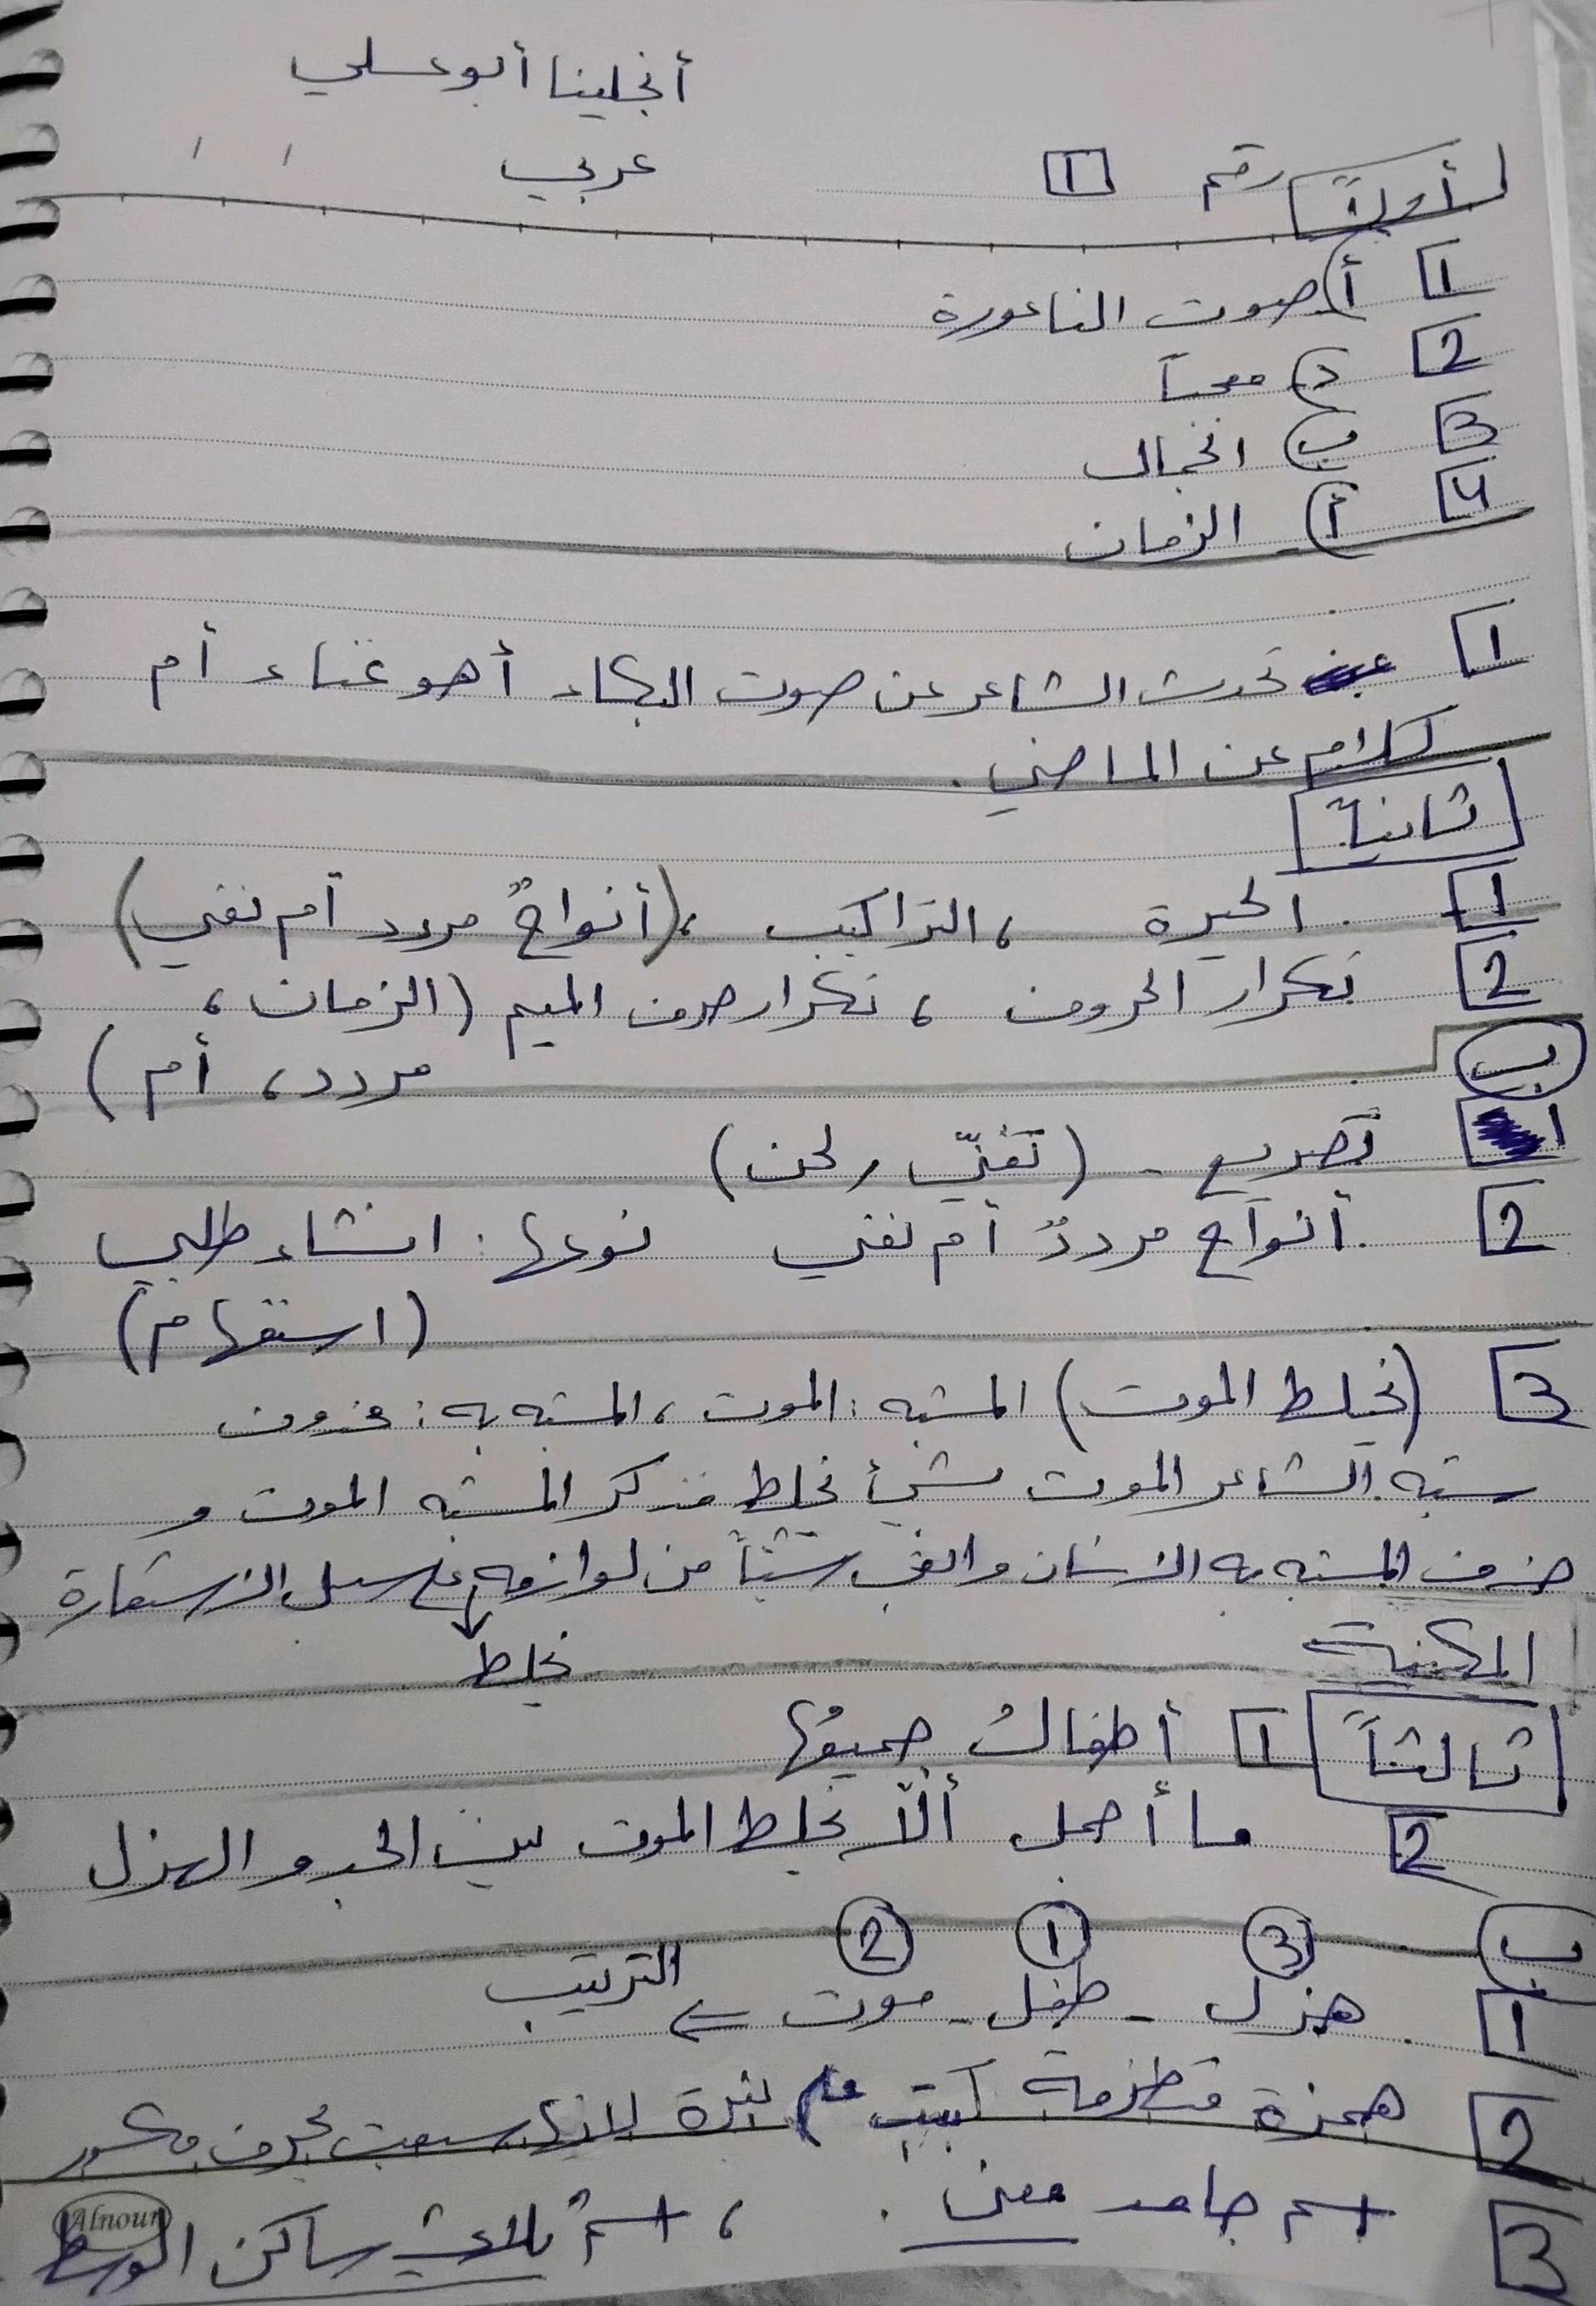 أنجلينا أبو عسلي
عربي
أولاً رقم 1
1 أ) صوت الناعورة
2 د) معجباً
3 ب) انجمال
4 أ) الزمان
1 تحدث الشاعر عن صوت البكاء أهو غناء أم
كلام عن الماضي .
ثانياً
1 الحيرة ، التراكيب ، (أنواحٌ مردد أم نغني)
2 تكرار الحروف ، تكرار حرف الميم (الزمان ،
مردد ، أم )
ب
1 تصريع - (تغنّي ، لحن)
2 أنواح مرددٌ أم نغني نوعها : انشاء طلبي
(استفهام)
3 (نخلط الموت) المشبه : الموت ، المشبه به : محذوف
شبه الشاعر الموت بشيءٍ نخلط فذكر المشبه الموت و
حذف المشبه به الانسان وابقى شيئاً من لوازمه على سبيل الاستعارة
المكنية نخلط
ثالثاً 1 أطفالٌ جميعُها
2 ما أجمل ألّا نخلط الموت بين الجد و الهزل
ب 3 1 2
1 هزل - طفل - موت ⇐ الترتيب
2 همزة متطرفة كتبت على نبرة لانها سبقت بحرف مكسور
3 اسم جامد معنى . ، اسمٌ ثلاثي ساكن الوسط
Alnour